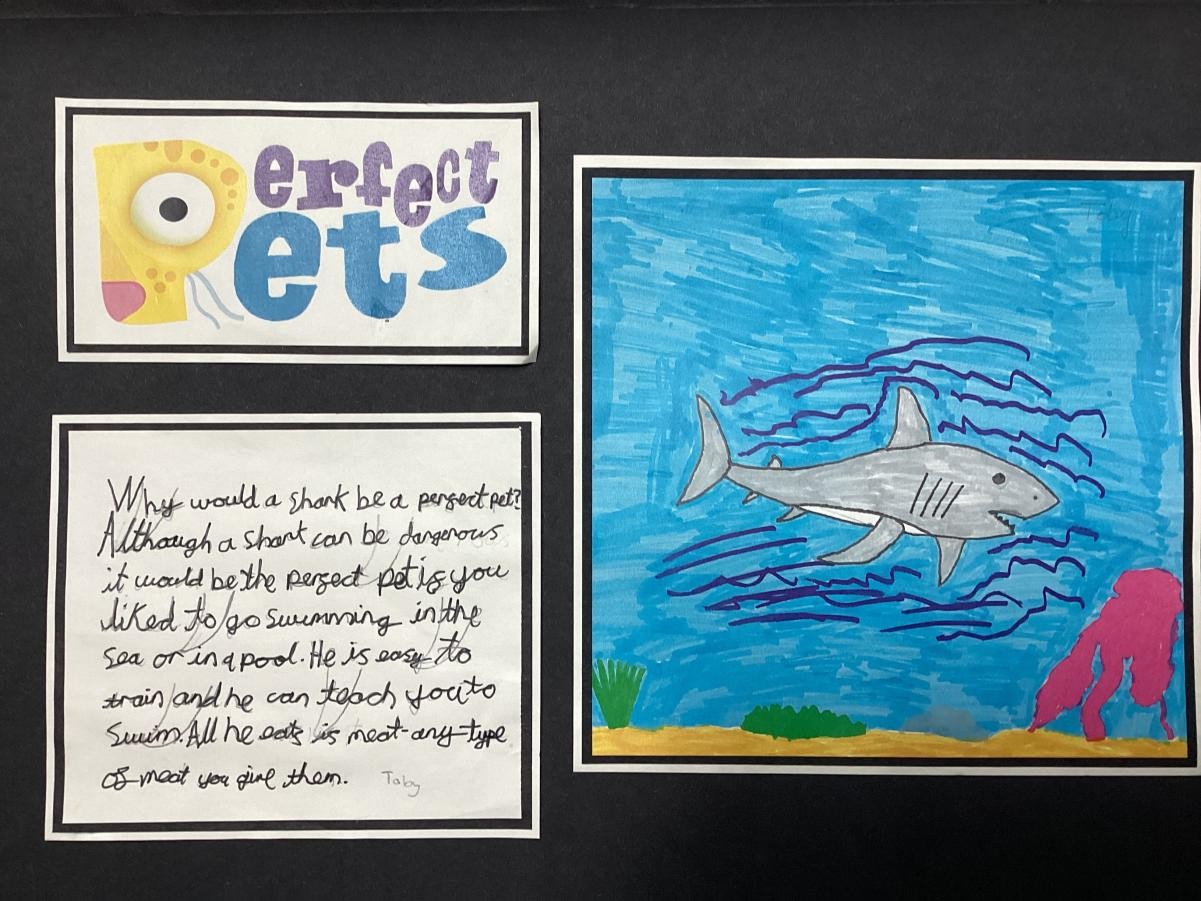 Perfect
Pets
Why would a shark be a perfect pet?
Although a shark can be dangerous
it would be the perfect pet if you
liked to go swimming in the
sea or in a pool. He is easy to
train and he can teach you to
swim. All he eats is meat - any type
of meat you give them.
Toby
Toby